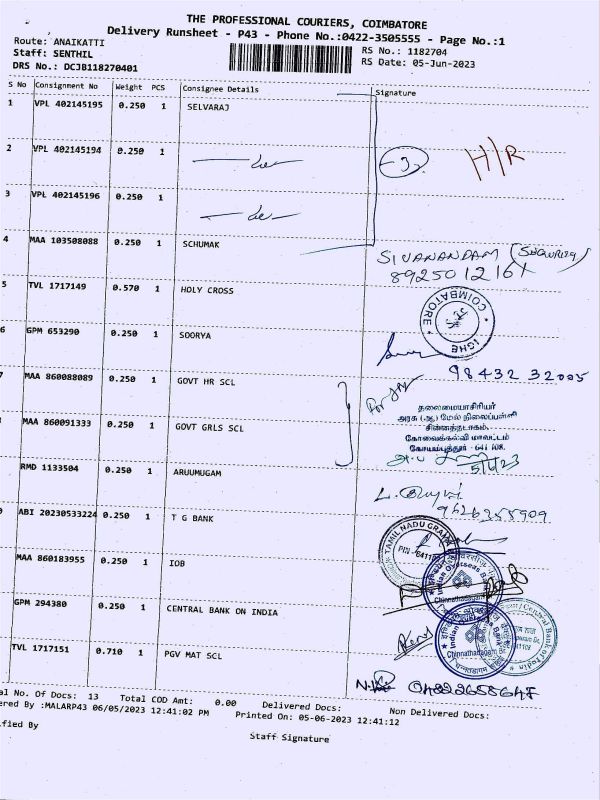 THE PROFESSIONAL COURIERS, COIMBATORE
Delivery Runsheet - P43 - Phone No.:0422-3505555 - Page No.:1
Route: ANAIKATTI
RS No.: 1182704
Staff: SENTHIL
RS Date: 05-Jun-2023
DRS No.: DCJB118270401
S No Consignment No Weight PCS Consignee Details Signature
1 VPL 402145195 0.250 1 SELVARAJ
2 VPL 402145194 0.250 1
H/R
3 VPL 402145196 0.250 1
4 MAA 103508088 0.250 1 SCHUMAK
SIVANANDAM
892501216
5 TVL 1717149 0.570 1 HOLY CROSS
COIMBATORE
6 GPM 653290 0.250 1 SOORYA
98432 32005
7 MAA 860088089 0.250 1 GOVT HR SCL
தலைமையாசிரியர்
அரசு (ஆ) மேல் நிலைப்பள்ளி
சின்னத்தடாகம்,
கோவைக்கல்வி மாவட்டம்
கோயம்புத்தூர் - 641 108.
MAA 860091333 0.250 1 GOVT GRLS SCL
5/6/23
RMD 1133504 0.250 1 ARUUMUGAM
9626355909
ABI 20230533224 0.250 1 T G BANK
TAMIL NADU GRAMA
PIN - 641108
MAA 860183955 0.250 1 IOB
Indian Overseas Bank
Chinnathadagam
GPM 294380 0.250 1 CENTRAL BANK ON INDIA
Indian Overseas Bank
Chinnathadagam
Central Bank of India
TVL 1717151 0.710 1 PGV MAT SCL
No. Of Docs: 13 Total COD Amt: 0.00 Delivered Docs: Non Delivered Docs:
By :MALARP43 06/05/2023 12:41:02 PM Printed On: 05-06-2023 12:41:12
By
Staff Signature